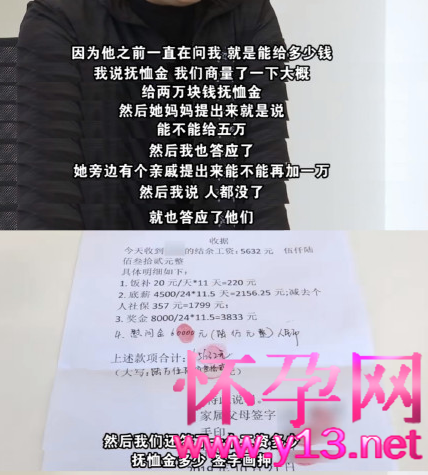 因为他之前一直在问我 就是能给多少钱
我说抚恤金 我们商量了一下大概
给两万块钱抚恤金
然后她妈妈提出来就是说
能不能给五万
然后我也答应了
她旁边有个亲戚提出来能不能再加一万
然后我说 人都没了
就也答应了他们
收据
今天收到 的结余工资:5632 元 伍仟陆
佰叁拾贰元整
具体明细如下:
1. 饭补 20 元/天*11 天=220 元
2. 底薪 4500/24*11.5 天=2156.25 元;减去个
人社保 357 元=1799 元;
3. 奖金 8000/24*11.5=3833 元
4. 慰问金 60000 元(陆万元整)人民币
上述款项合计:
(大写:
家属父母签字
手印
然后我们
抚恤金多少 签字画押
怀孕网
www.y13.net